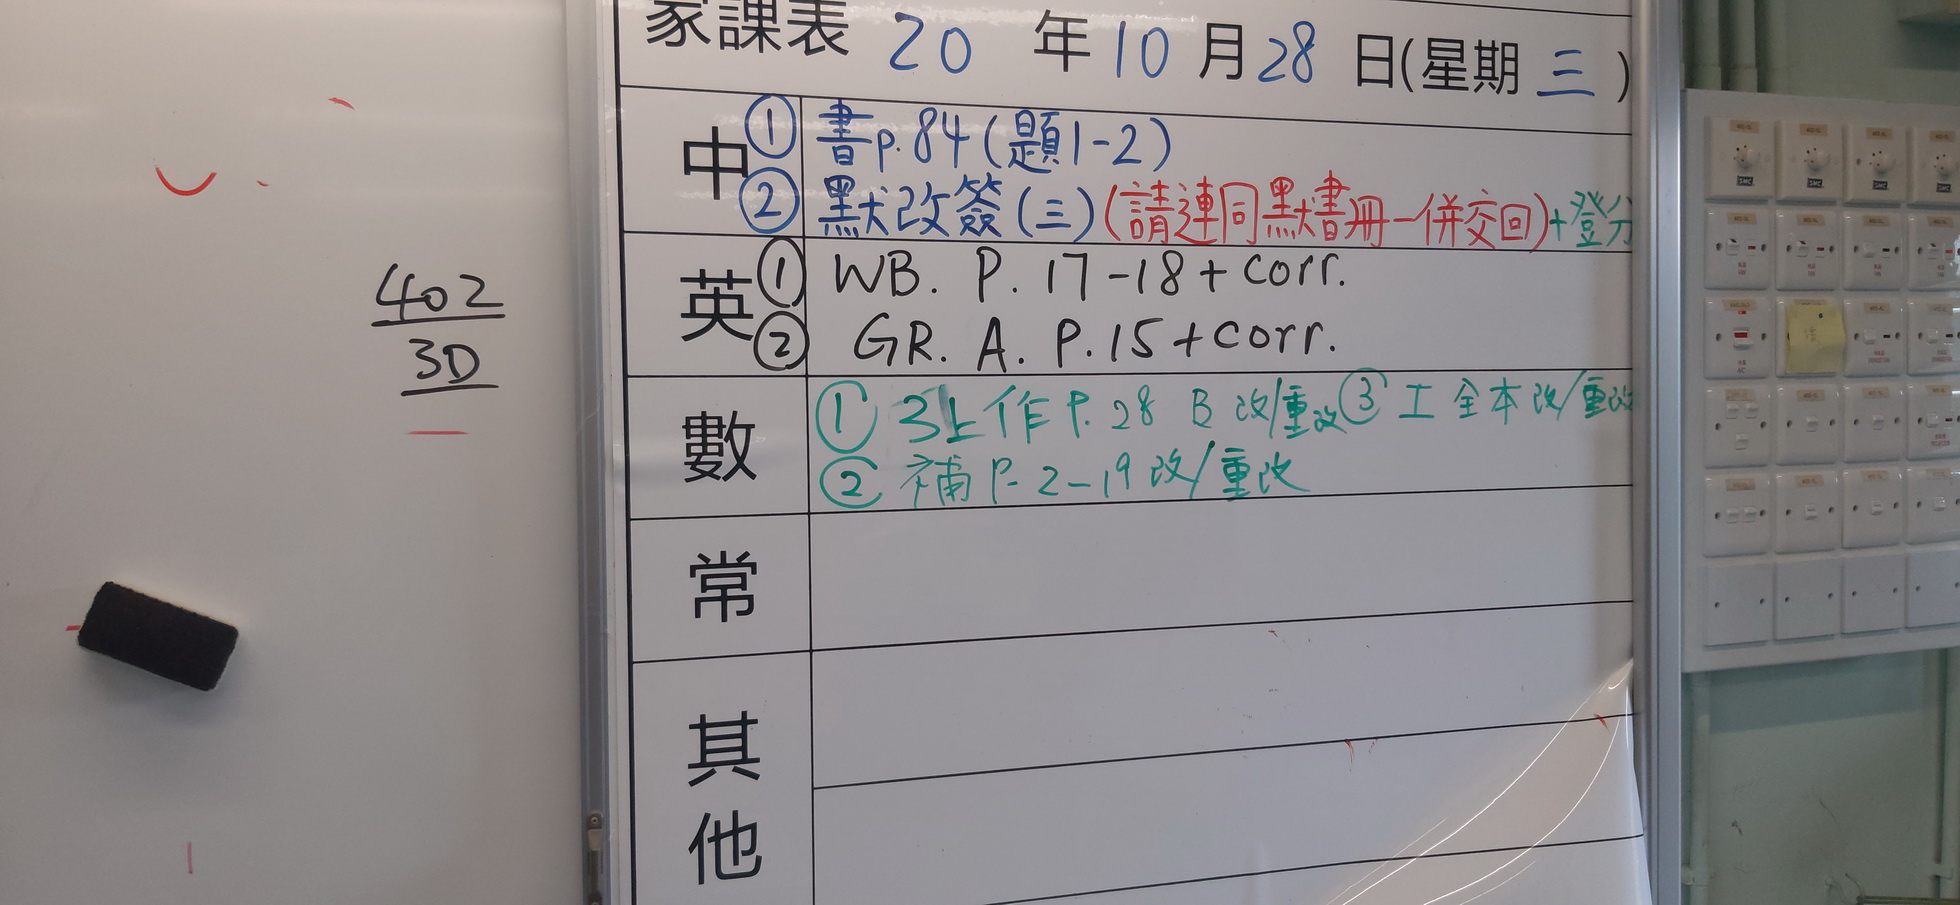 家課表 20 年 10 月 28 日(星期 三 )
中 ① 書p.84(題1-2)
② 默改簽(三)(請連同默書冊一併交回)+登分
英 ① WB. P. 17-18 + corr.
② GR. A. P.15 + corr.
數 ① 3上作 P. 28 B 改/重改 ③ 工 全本改/重改
② 補 P. 2-19 改/重改
常
其他
402
3D